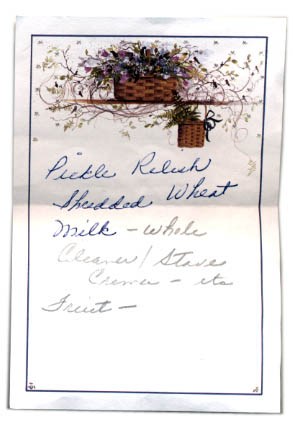 Pickle Relish
Shredded Wheat
Milk - whole
Cleaner / Stove
Fruit -